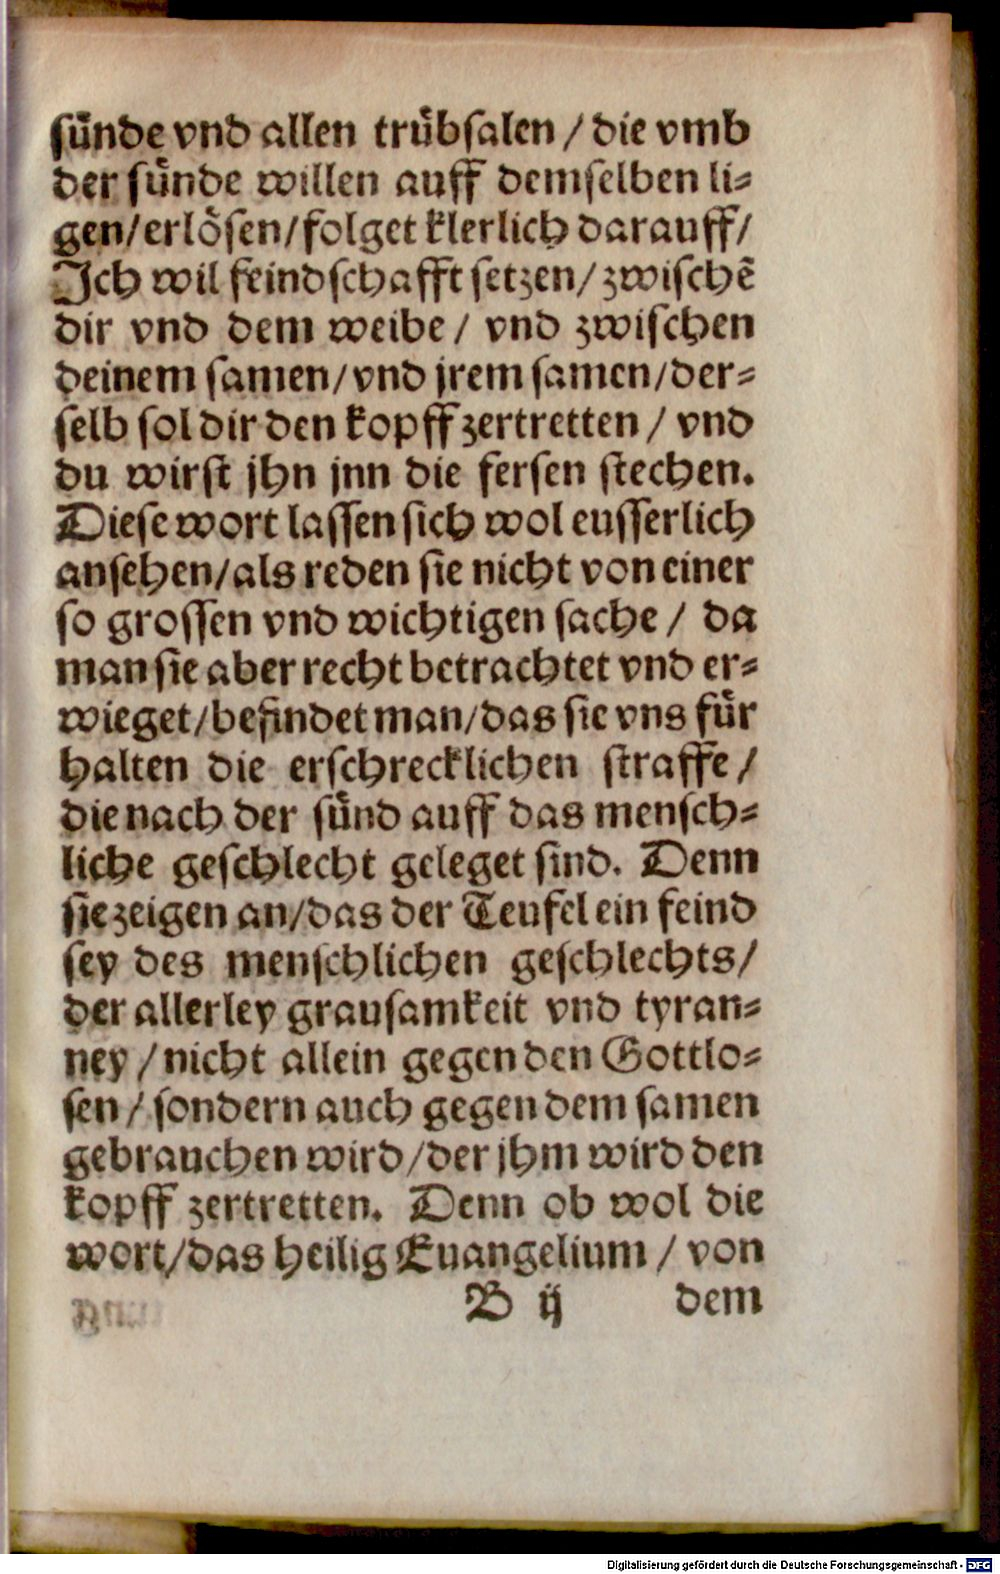 sünde vnd allen trübsalen / die vmb
der sünde willen auff demselben li⸗
gen/erlösen/folget klerlich darauff/
Ich wil feindschafft setzen/zwischẽ
dir vnd dem weibe / vnd zwischen
deinem samen/vnd jrem samen/der⸗
selb sol dir den kopff zertretten / vnd
du wirst jhn jnn die fersen stechen.
Diese wort lassen sich wol eusserlich
ansehen/als reden sie nicht von einer
so grossen vnd wichtigen sache / da
man sie aber recht betrachtet vnd er⸗
wieget/befindet man/das sie vns für
halten die erschrecklichen straffe /
die nach der sünd auff das mensch⸗
liche geschlecht geleget sind. Denn
sie zeigen an/das der Teufel ein feind
sey des menschlichen geschlechts/
der allerley grausamkeit vnd tyran⸗
ney / nicht allein gegen den Gottlo⸗
sen / sondern auch gegen dem samen
gebrauchen wird/der jhm wird den
kopff zertretten. Denn ob wol die
wort/das heilig Euangelium / von
B ij dem
Digitalisierung gefördert durch die Deutsche Forschungsgemeinschaft - DFG